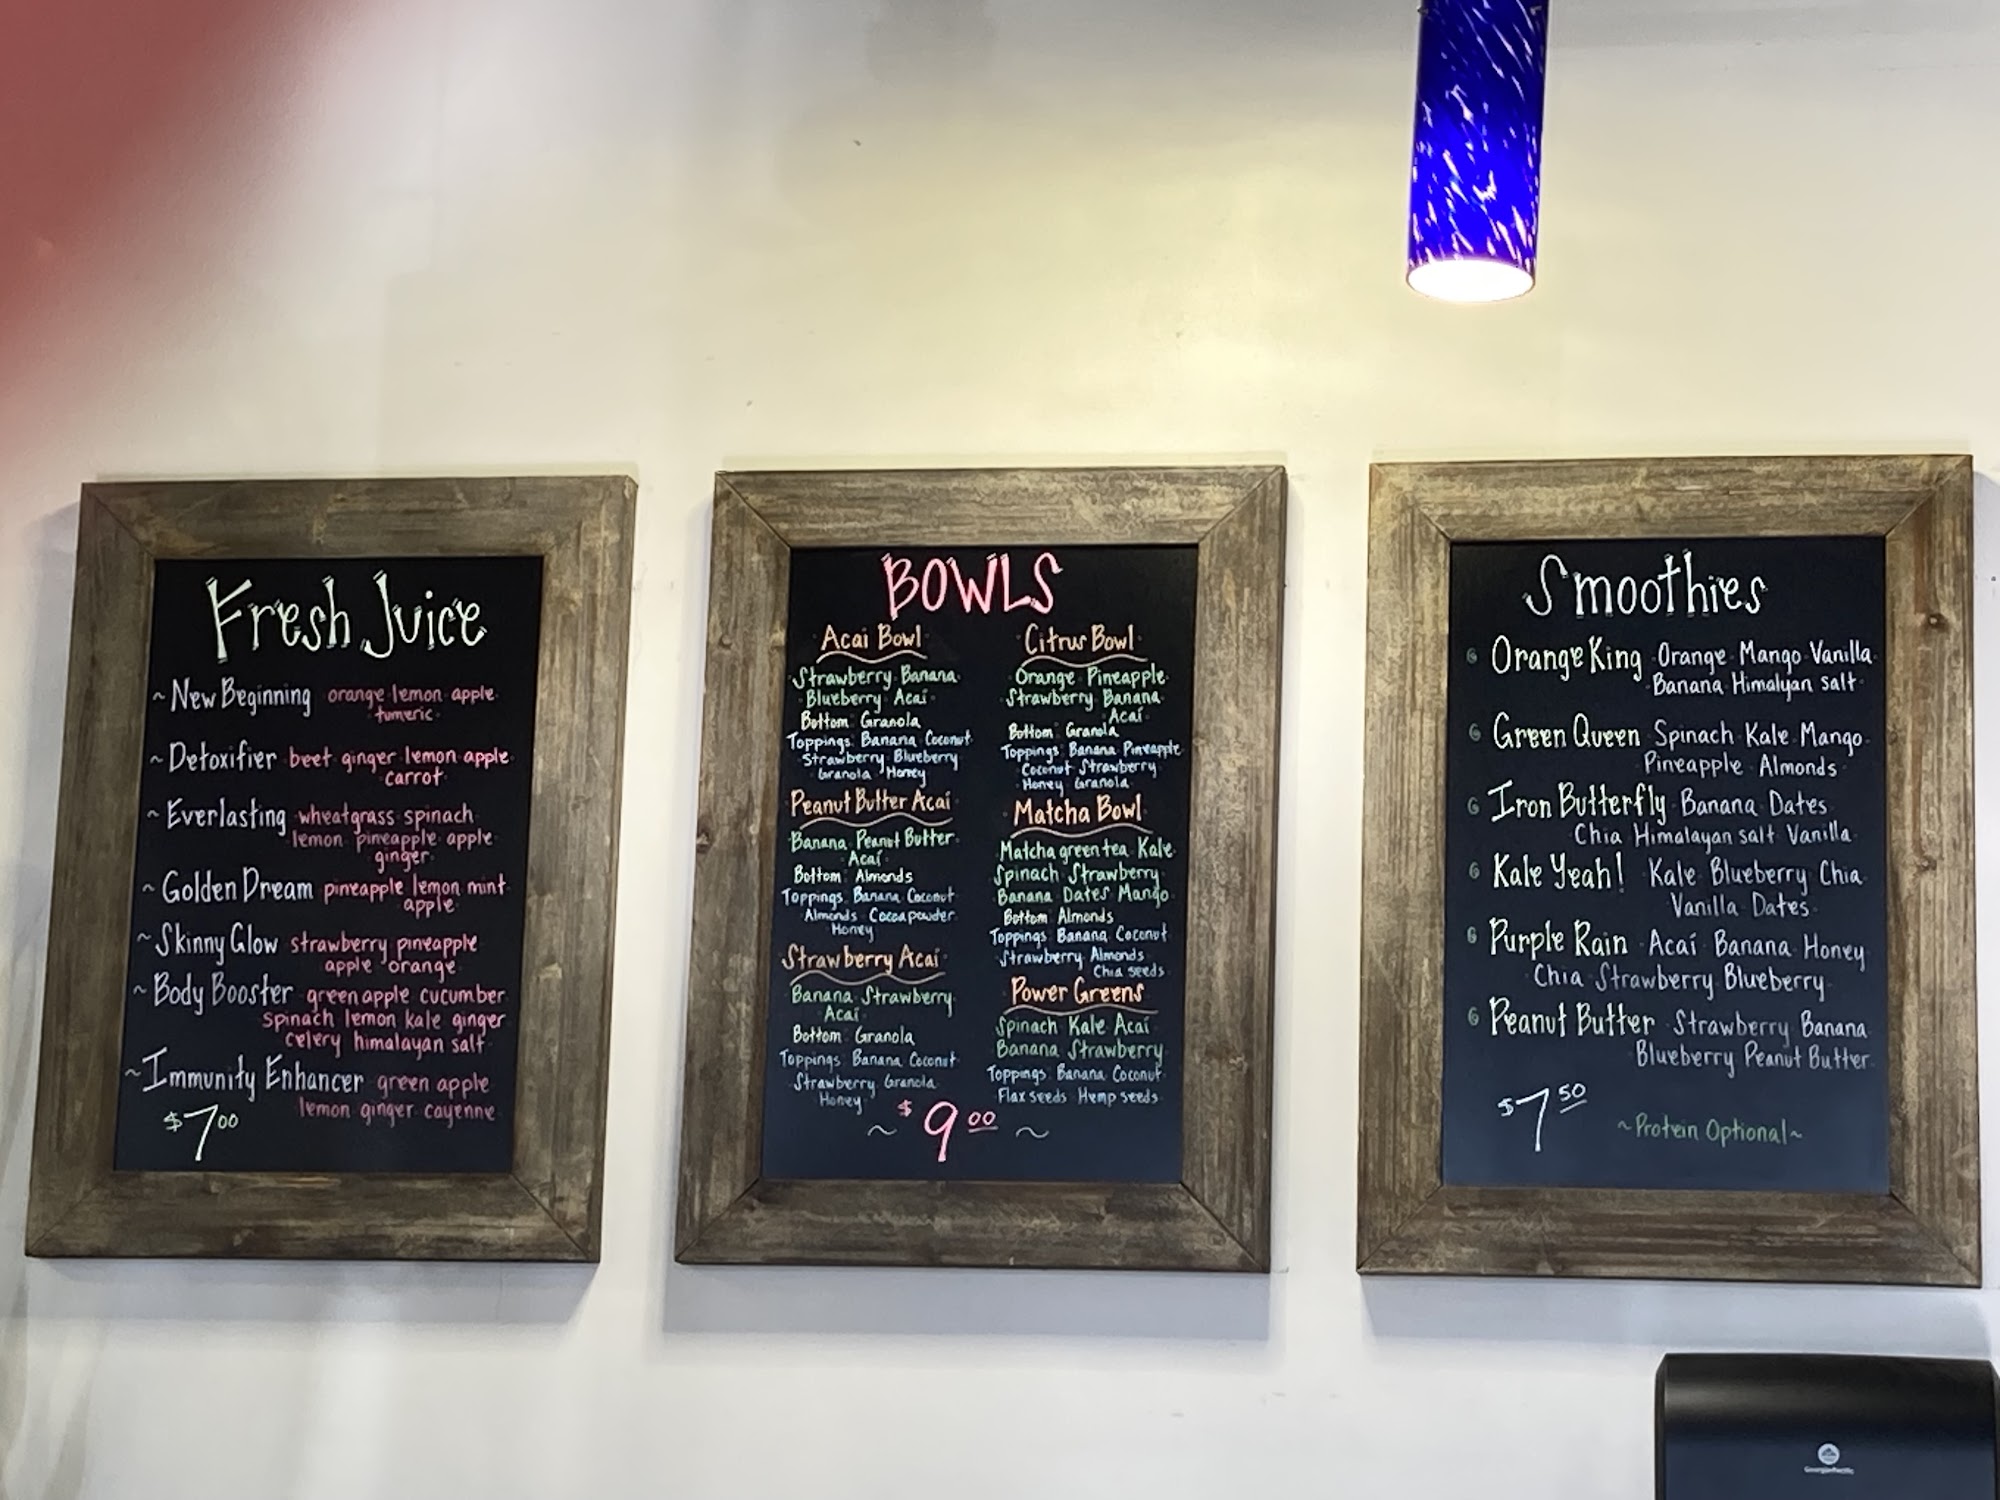 Fresh Juice
~ New Beginning orange lemon apple
tumeric
~ Detoxifier beet ginger lemon apple
carrot
~ Everlasting wheatgrass spinach
lemon pineapple apple
ginger
~ Golden Dream pineapple lemon mint
apple
~ Skinny Glow strawberry pineapple
apple orange
~ Body Booster green apple cucumber
spinach lemon kale ginger
celery himalayan salt
~ Immunity Enhancer green apple
lemon ginger cayenne
$7.00
BOWLS
Acai Bowl
Strawberry Banana
Blueberry Acaí
Bottom Granola
Toppings Banana Coconut
Strawberry Blueberry
Granola Honey
Peanut Butter Acai
Banana Peanut Butter
Acaí
Bottom Almonds
Toppings Banana Coconut
Almonds Cocoapowder
Honey
Strawberry Acai
Banana Strawberry
Acaí
Bottom Granola
Toppings Banana Coconut
Strawberry Granola
Honey
Citrus Bowl
Orange Pineapple
Strawberry Banana
Acaí
Bottom Granola
Toppings Banana Pineapple
Coconut Strawberry
Honey Granola
Matcha Bowl
Matcha green tea Kale
Spinach Strawberry
Banana Dates Mango
Bottom Almonds
Toppings Banana Coconut
Strawberry Almonds
Chia seeds
Power Greens
Spinach Kale Acai
Banana Strawberry
Toppings Banana Coconut
Flax seeds Hemp seeds
~ $9.00 ~
Smoothies
Orange King Orange Mango Vanilla
Banana Himalyan salt
Green Queen Spinach Kale Mango
Pineapple Almonds
Iron Butterfly Banana Dates
Chia Himalayan salt Vanilla
Kale Yeah! Kale Blueberry Chia
Vanilla Dates
Purple Rain Acaí Banana Honey
Chia Strawberry Blueberry
Peanut Butter Strawberry Banana
Blueberry Peanut Butter
$7.50
~Protein Optional~
Georgia-Pacific